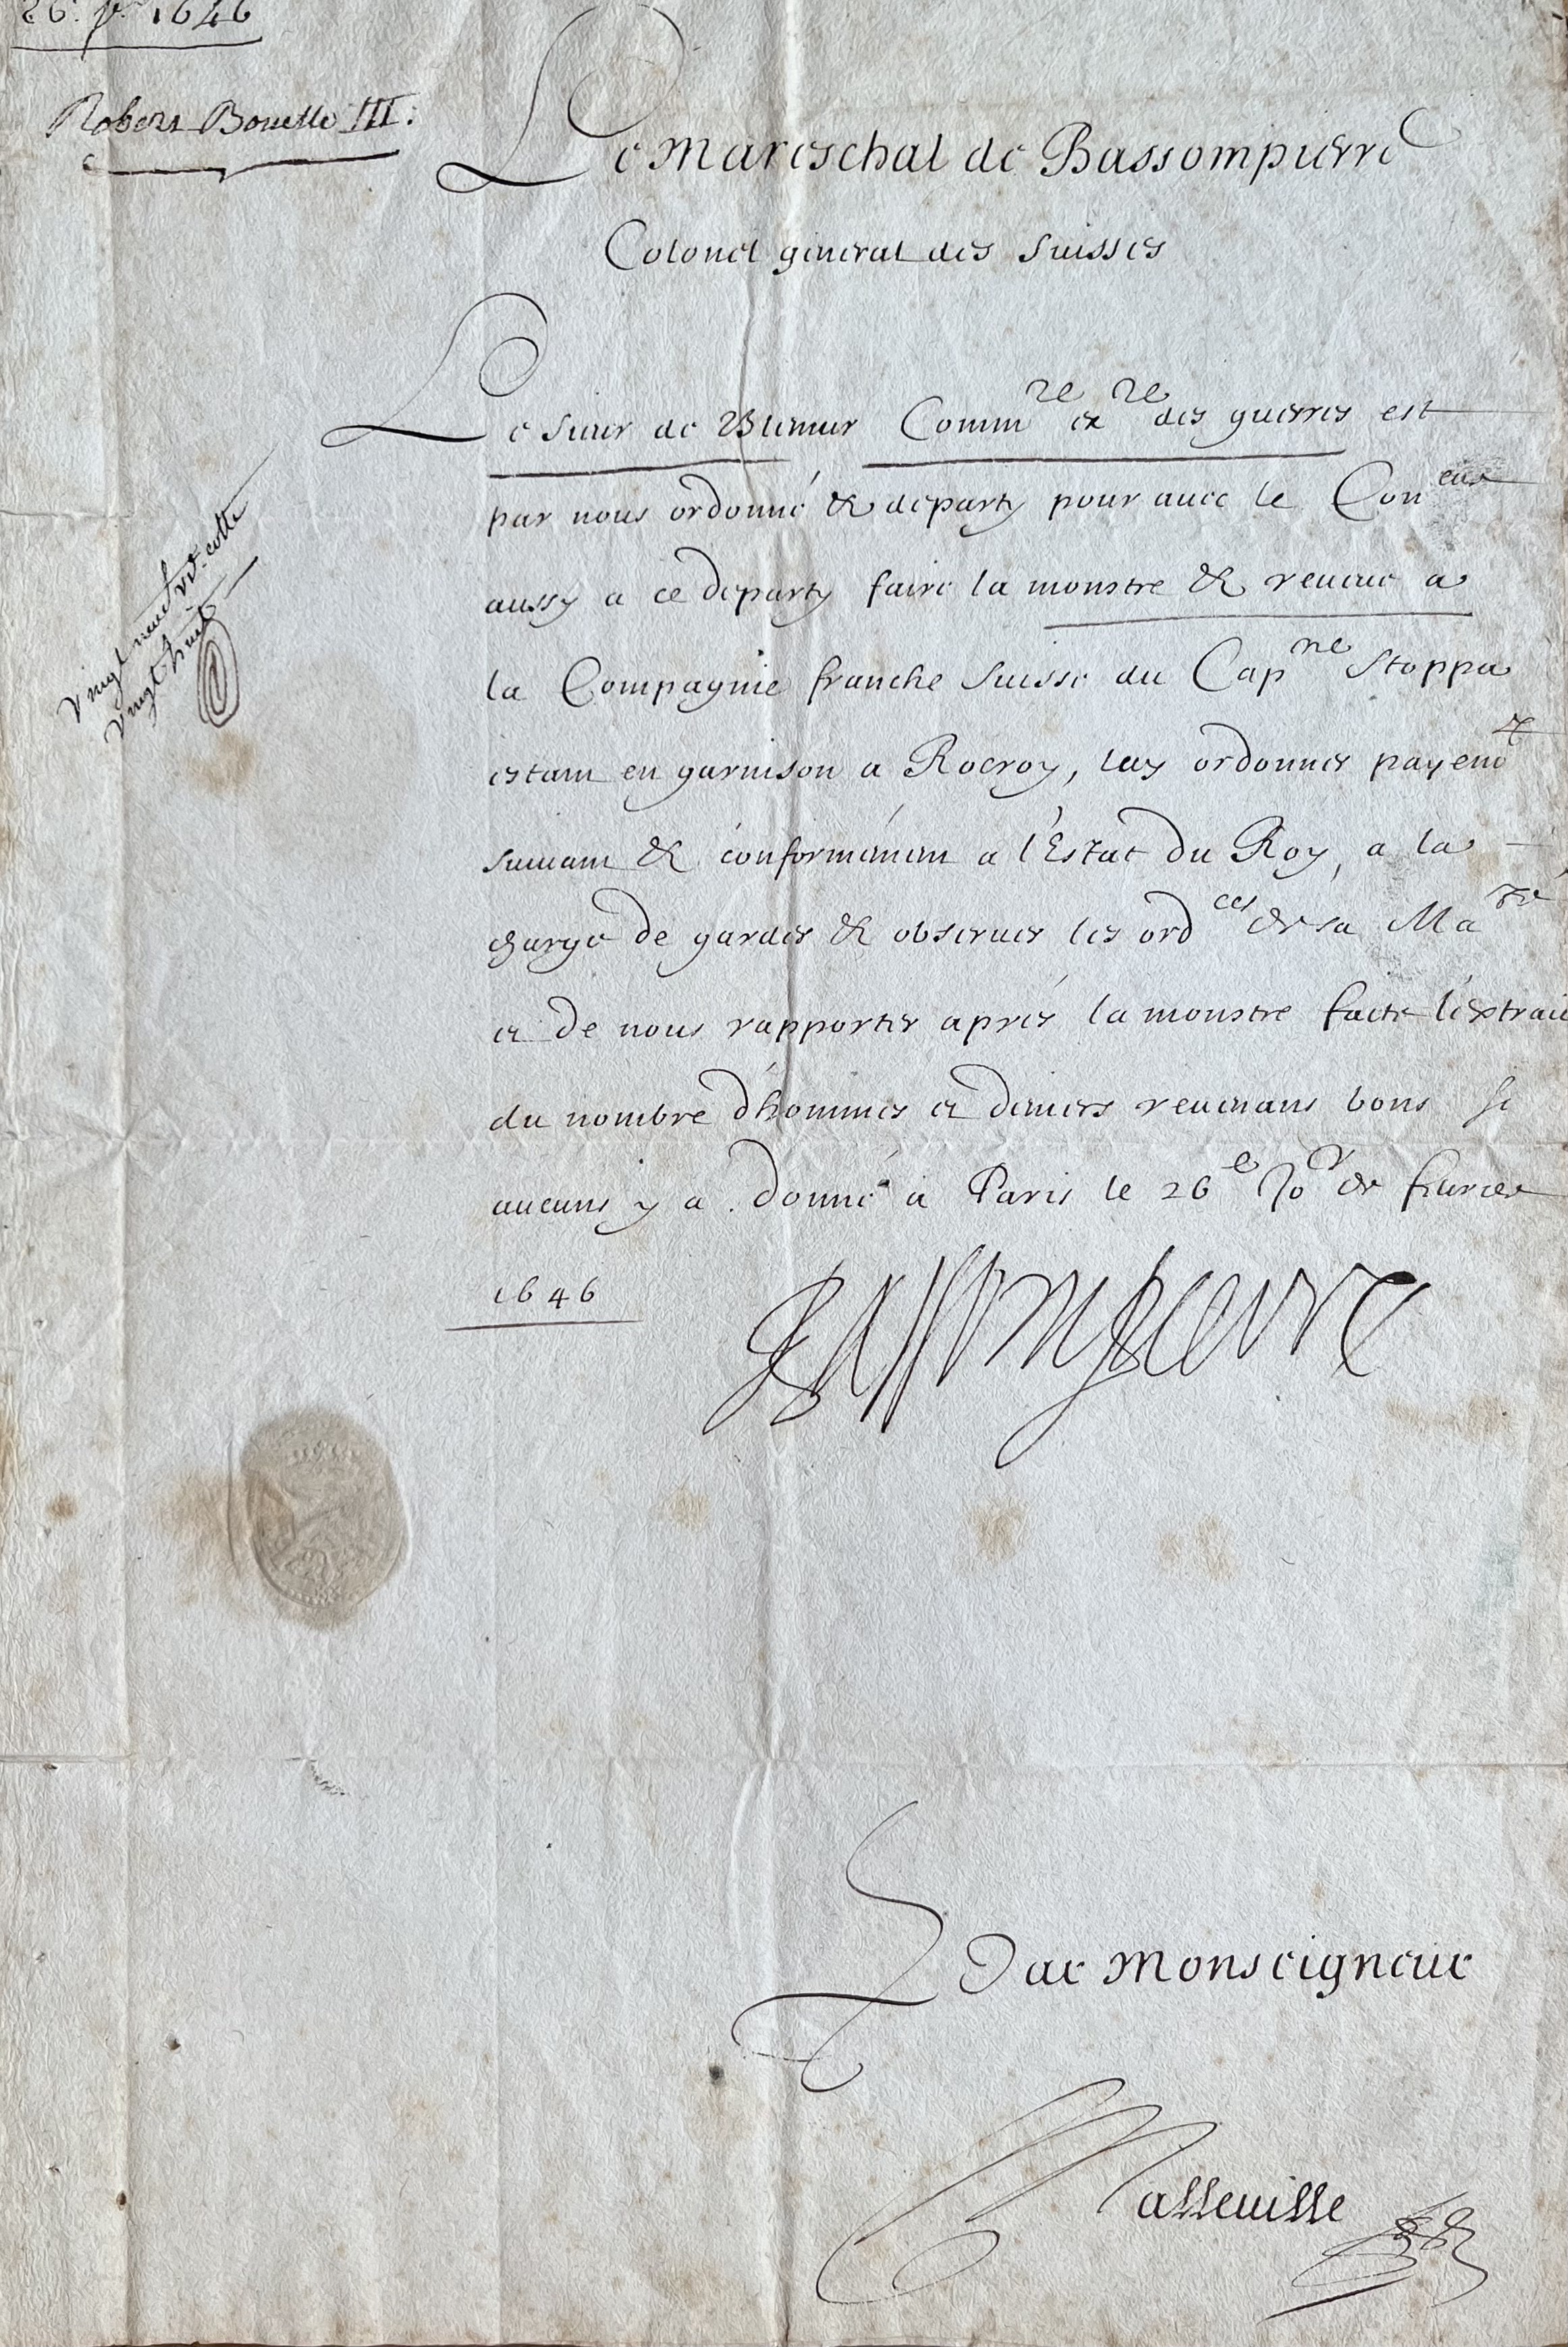 26. fr 1646
Robert Bouette III:
Le Mareschal de Bassompierre
Colonel general des Suisses
Le sieur de Blemur Commre ex re des guerres est
par nous ordonné & departy pour avec le Coneur
aussy a ce departy faire la monstre & reveue a
la Compagnie franche Suisse du Capne Stoppa
estant en garnison a Rocroy, luy ordonner payemt
suivant & conformément a l'Estat du Roy, a la
charge de garder & observer les ordces de sa Maté
et de nous rapporter aprés la monstre faite l'extrait
du nombre d'hommes et deniers revenans bons si
aucuns y a. donné à Paris le 26e Jor de fevrier
1646
Bassompierre
vingt neufvie cotte
vingt huit
Par Monseigneur
Malleville